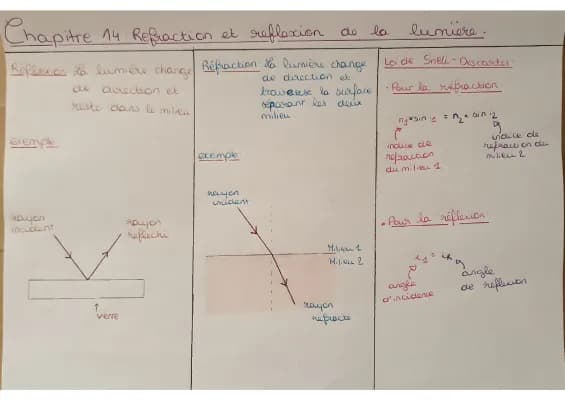 Chapitre 14 Réfraction et réflexion de la lumière.
Réflexion: La lumière change
de direction et
reste dans le milieu
exemple
rayon
incident
rayon
réfléchi
verre
Réfraction: La lumière change
de direction et
traverse la surface
séparant les deux
milieu
exemple
rayon
incident
Milieu 1
Milieu 2
rayon
réfracté
Loi de Snell-Descartes
• Pour la réfraction
n₁ × sin i₁ = n₂ × sin i₂
indice de
réfraction
du milieu 1
indice de
réfraction du
milieu 2
• Pour la réflexion
angle
d'incidence
angle
de réflexion